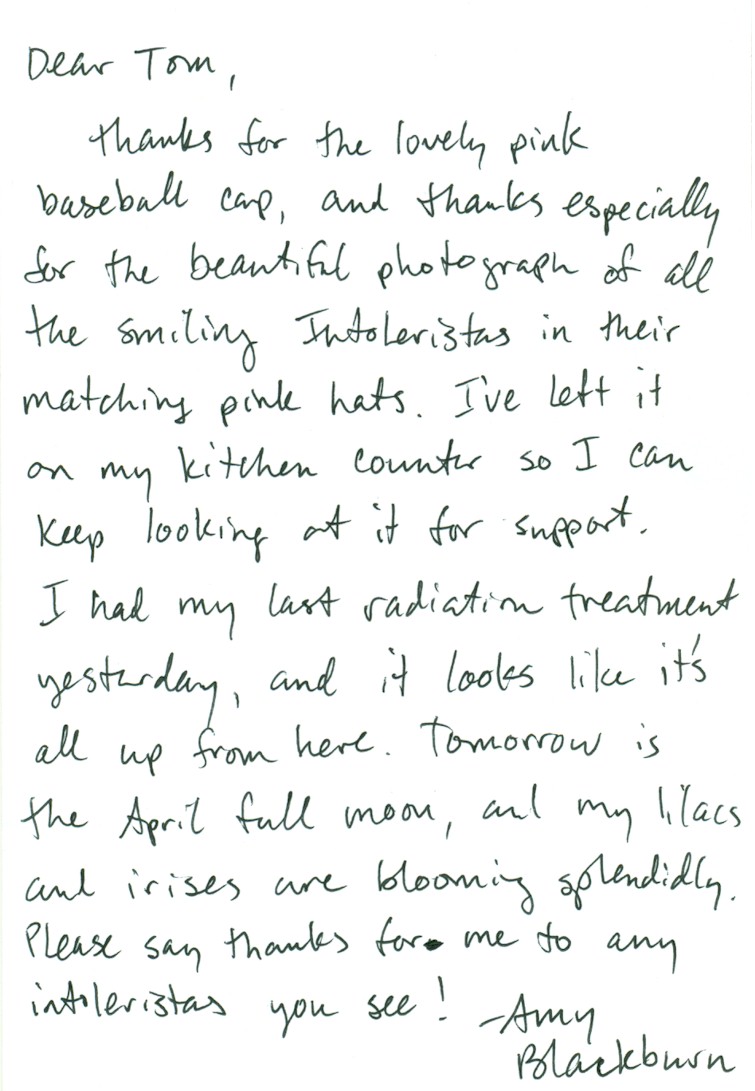 Dear Tom,
thanks for the lovely pink
baseball cap, and thanks especially
for the beautiful photograph of all
the smiling Intoleristas in their
matching pink hats. I've left it
on my kitchen counter so I can
keep looking at it for support.
I had my last radiation treatment
yesterday, and it looks like it's
all up from here. Tomorrow is
the April full moon, and my lilacs
and irises are blooming splendidly.
Please say thanks for me to any
intoleristas you see! -Amy
Blackburn